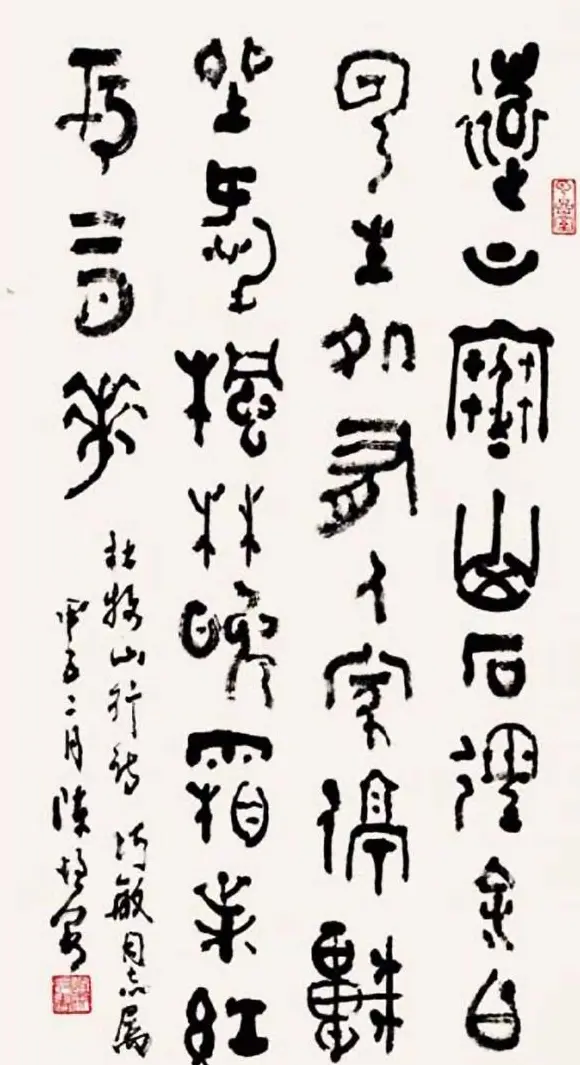 遠上寒山石徑斜白
雲生處有人家停車
坐愛楓林晚霜葉紅
於二月花
杜牧山行詩 敏同志属
甲子二月陳